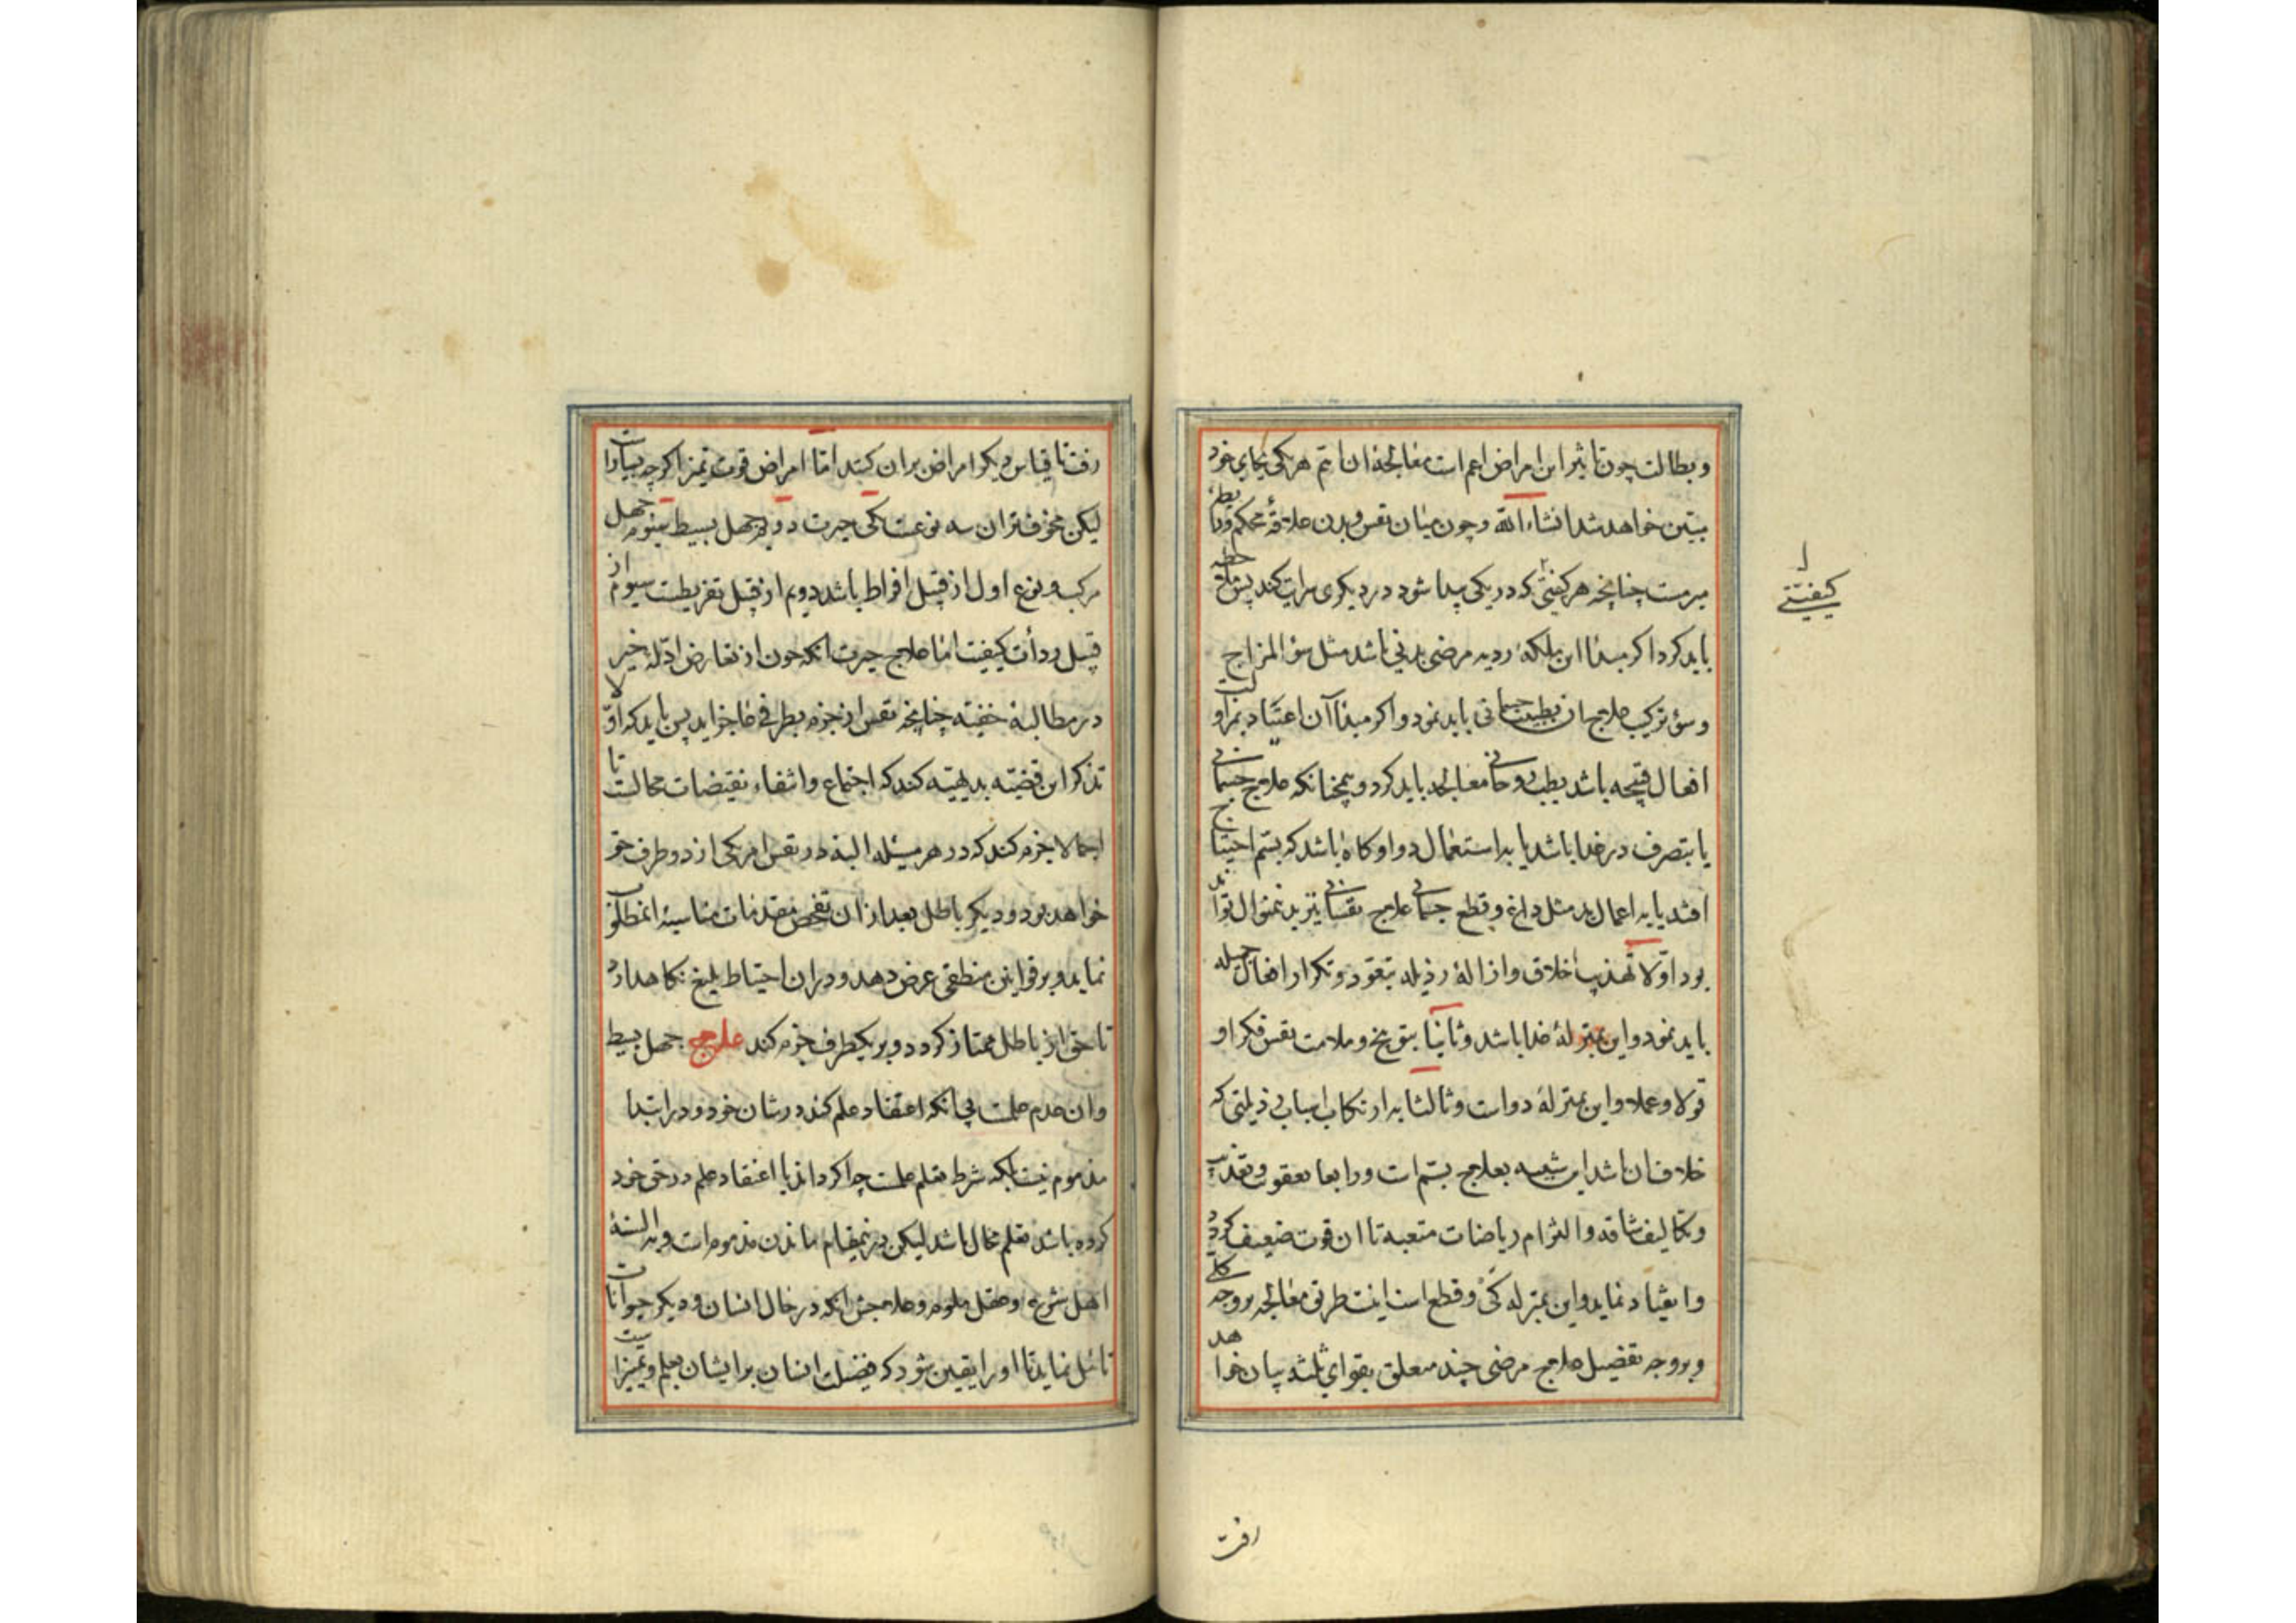 و بطالت چون تاثیر این امراض اعم است معالجۀ ان اتم هر یکی بجای خود
مبین خواهد شد انشاء الله و چون میان نفس و بدن علاقۀ محکم و ربط
مبرمست چنانچه هر کیفیتی که در یکی پیدا شود در دیگری سرایت کند پس ملاحظه
کیفیتی
باید کرد اگر مبدأ این ملکۀ ردیه مرضی بدنی باشد مثل سوء المزاج
و سوء ترکیب علاج ان بطب جسمانی باید نمود و اگر مبدأ آن اعتیاد بمزاولت
افعال قبیحه باشد بطب روحانی معالجه باید کرد و همچنانکه علاج جسمانی
یا بتصرف در غذا باشد یا به استعمال دوا و گاه باشد که بسم احتیاج
افتد یا به اعمال ید مثل داغ و قطع جسمانی علاج نفسانی نیز بدینمنوال تواند
بود اولا تهذیب اخلاق و ازالۀ رذیله بتعود و تکرار افعال جمیله
باید نمود و این بمنزلۀ غذا باشد و ثانیا بتوبیخ و ملامت نفس فکرا و
قولا و عملا و این بمنزلۀ دواست و ثالثا به ارتکاب اسباب رذیلتی که
خلاف ان باشد این شبیه بعلاج بسم است و رابعا بعقوبت و تعذیب
و تکالیف شاقه و التزام ریاضات متعبه تا ان قوت ضعیف گردد
و انقیاد نماید و این بمنزله کی و قطع است اینست طریق معالجه بر وجه کلی
و بر وجه تفصیل علاج مرضی چند متعلق بقوای ثلثه بیان خواهد
رفت تا قیاس دیگر امراض بران کنند امّا امراض قوت تمیز اگرچه بسیار است
لیکن مخوفتر ان سه نوعست یکی حیرت دویم جهل بسیط سیوم جهل
مرکب و نوع اول از قبل افراط باشد دویم از قبل تفریطست سیوم از
قبل ردأت کیفیت امّا علاج حیرت انکه چون از تعارض ادلۀ خیزد
در مطالبۀ خفیّه چنانچه نفس از جزم بطرفی عاجز اید پس باید که اوّلا
تذکر این قضیّه بدیهیّه کند که اجتماع و انتفاء نقیضات محالست تا
اجمالا جزم کند که در هر مسئله البته در نفس امر یکی از دو طرف حق
خواهد بود و دیگر باطل بعد ازان تفحص مقدمات مناسبۀ انمطلوب
نماید و بر قوانین منطقی عرض دهد و دران احتیاط بلیغ نگاهدارد
تا حق از باطل ممتاز گردد و بر یکطرف جزم کند علاج جهل بسیط
و ان عدم علمست بی انکه اعتقاد علم کند در شان خود و در ابتدا
مذموم نیست بلکه شرط تعلم علمست چه اگر داند یا اعتقاد علم در حق خود
کرده باشد تعلم محال باشد لیکن درینمقام ماندن مذموم است و بر السنۀ
اهل شرع و عقل ملوم و علاجش انکه در حال انسان و دیگر حیوانات
تامّل نماید تا او را یقین شود که فضیلت انسان بر ایشان بعلم و تمیز است
افت